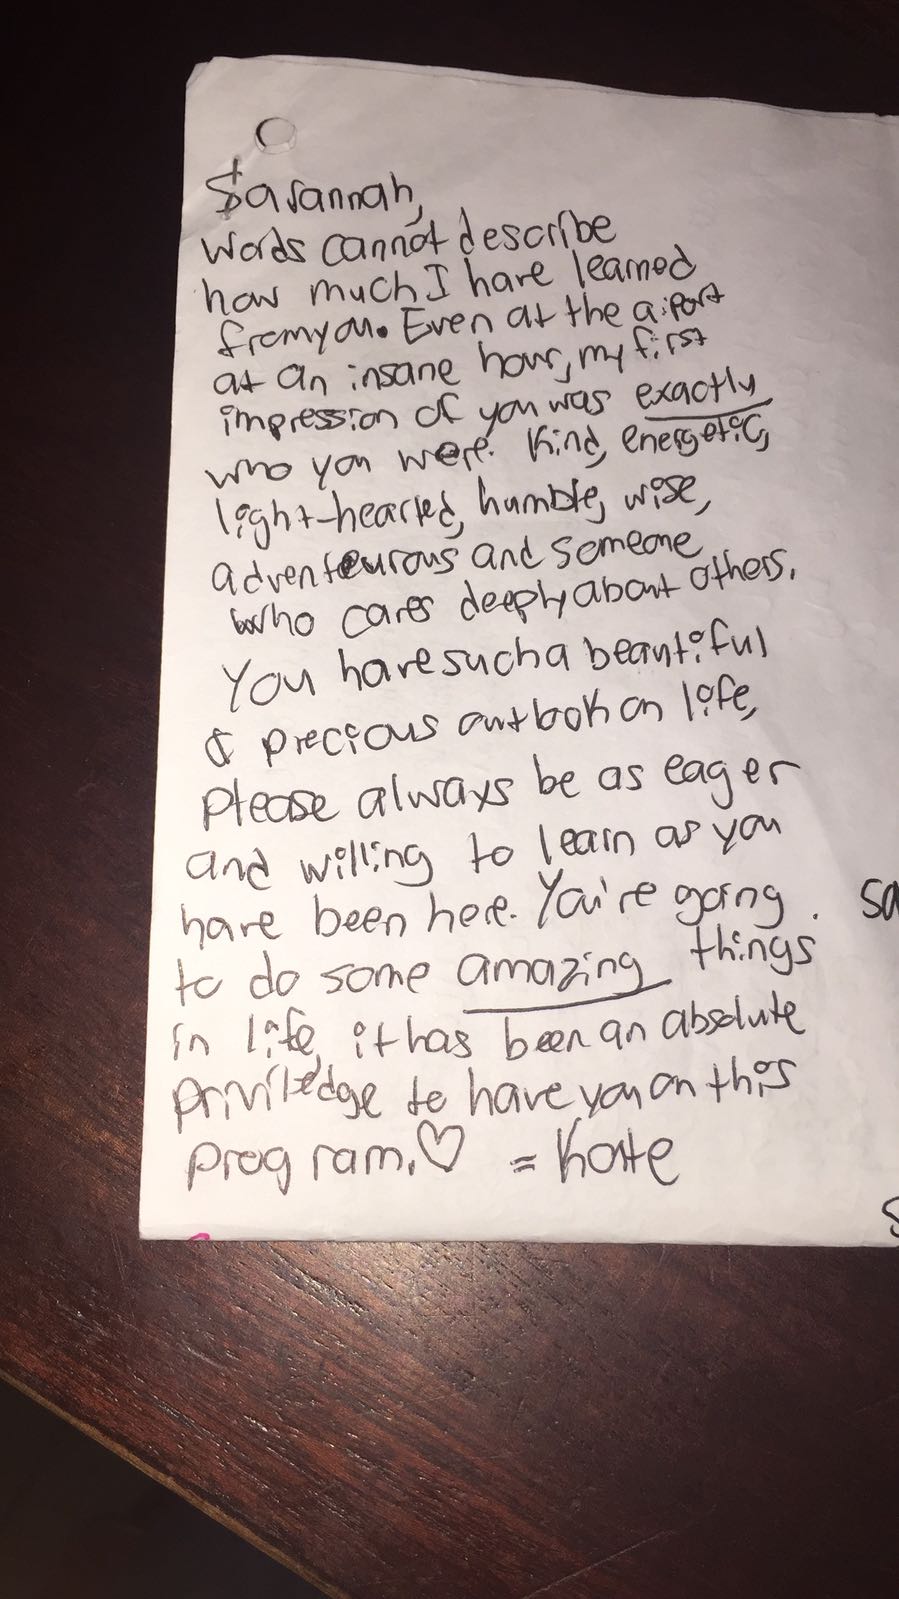 Savannah,
words cannot describe
how much I have learned
from you. Even at the aiport
at an insane hour, my first
impression of you was exactly
who you were. Kind, energetic,
light-hearted, humble, wise,
adventeurous and someone
who cares deeply about others.
You have such a beautiful
& precious outlook on life,
please always be as eager
and willing to learn as you
have been here. You're going
to do some amazing things
in life, it has been an absolute
priviledge to have you on this
program. ♡ = Kate
sa